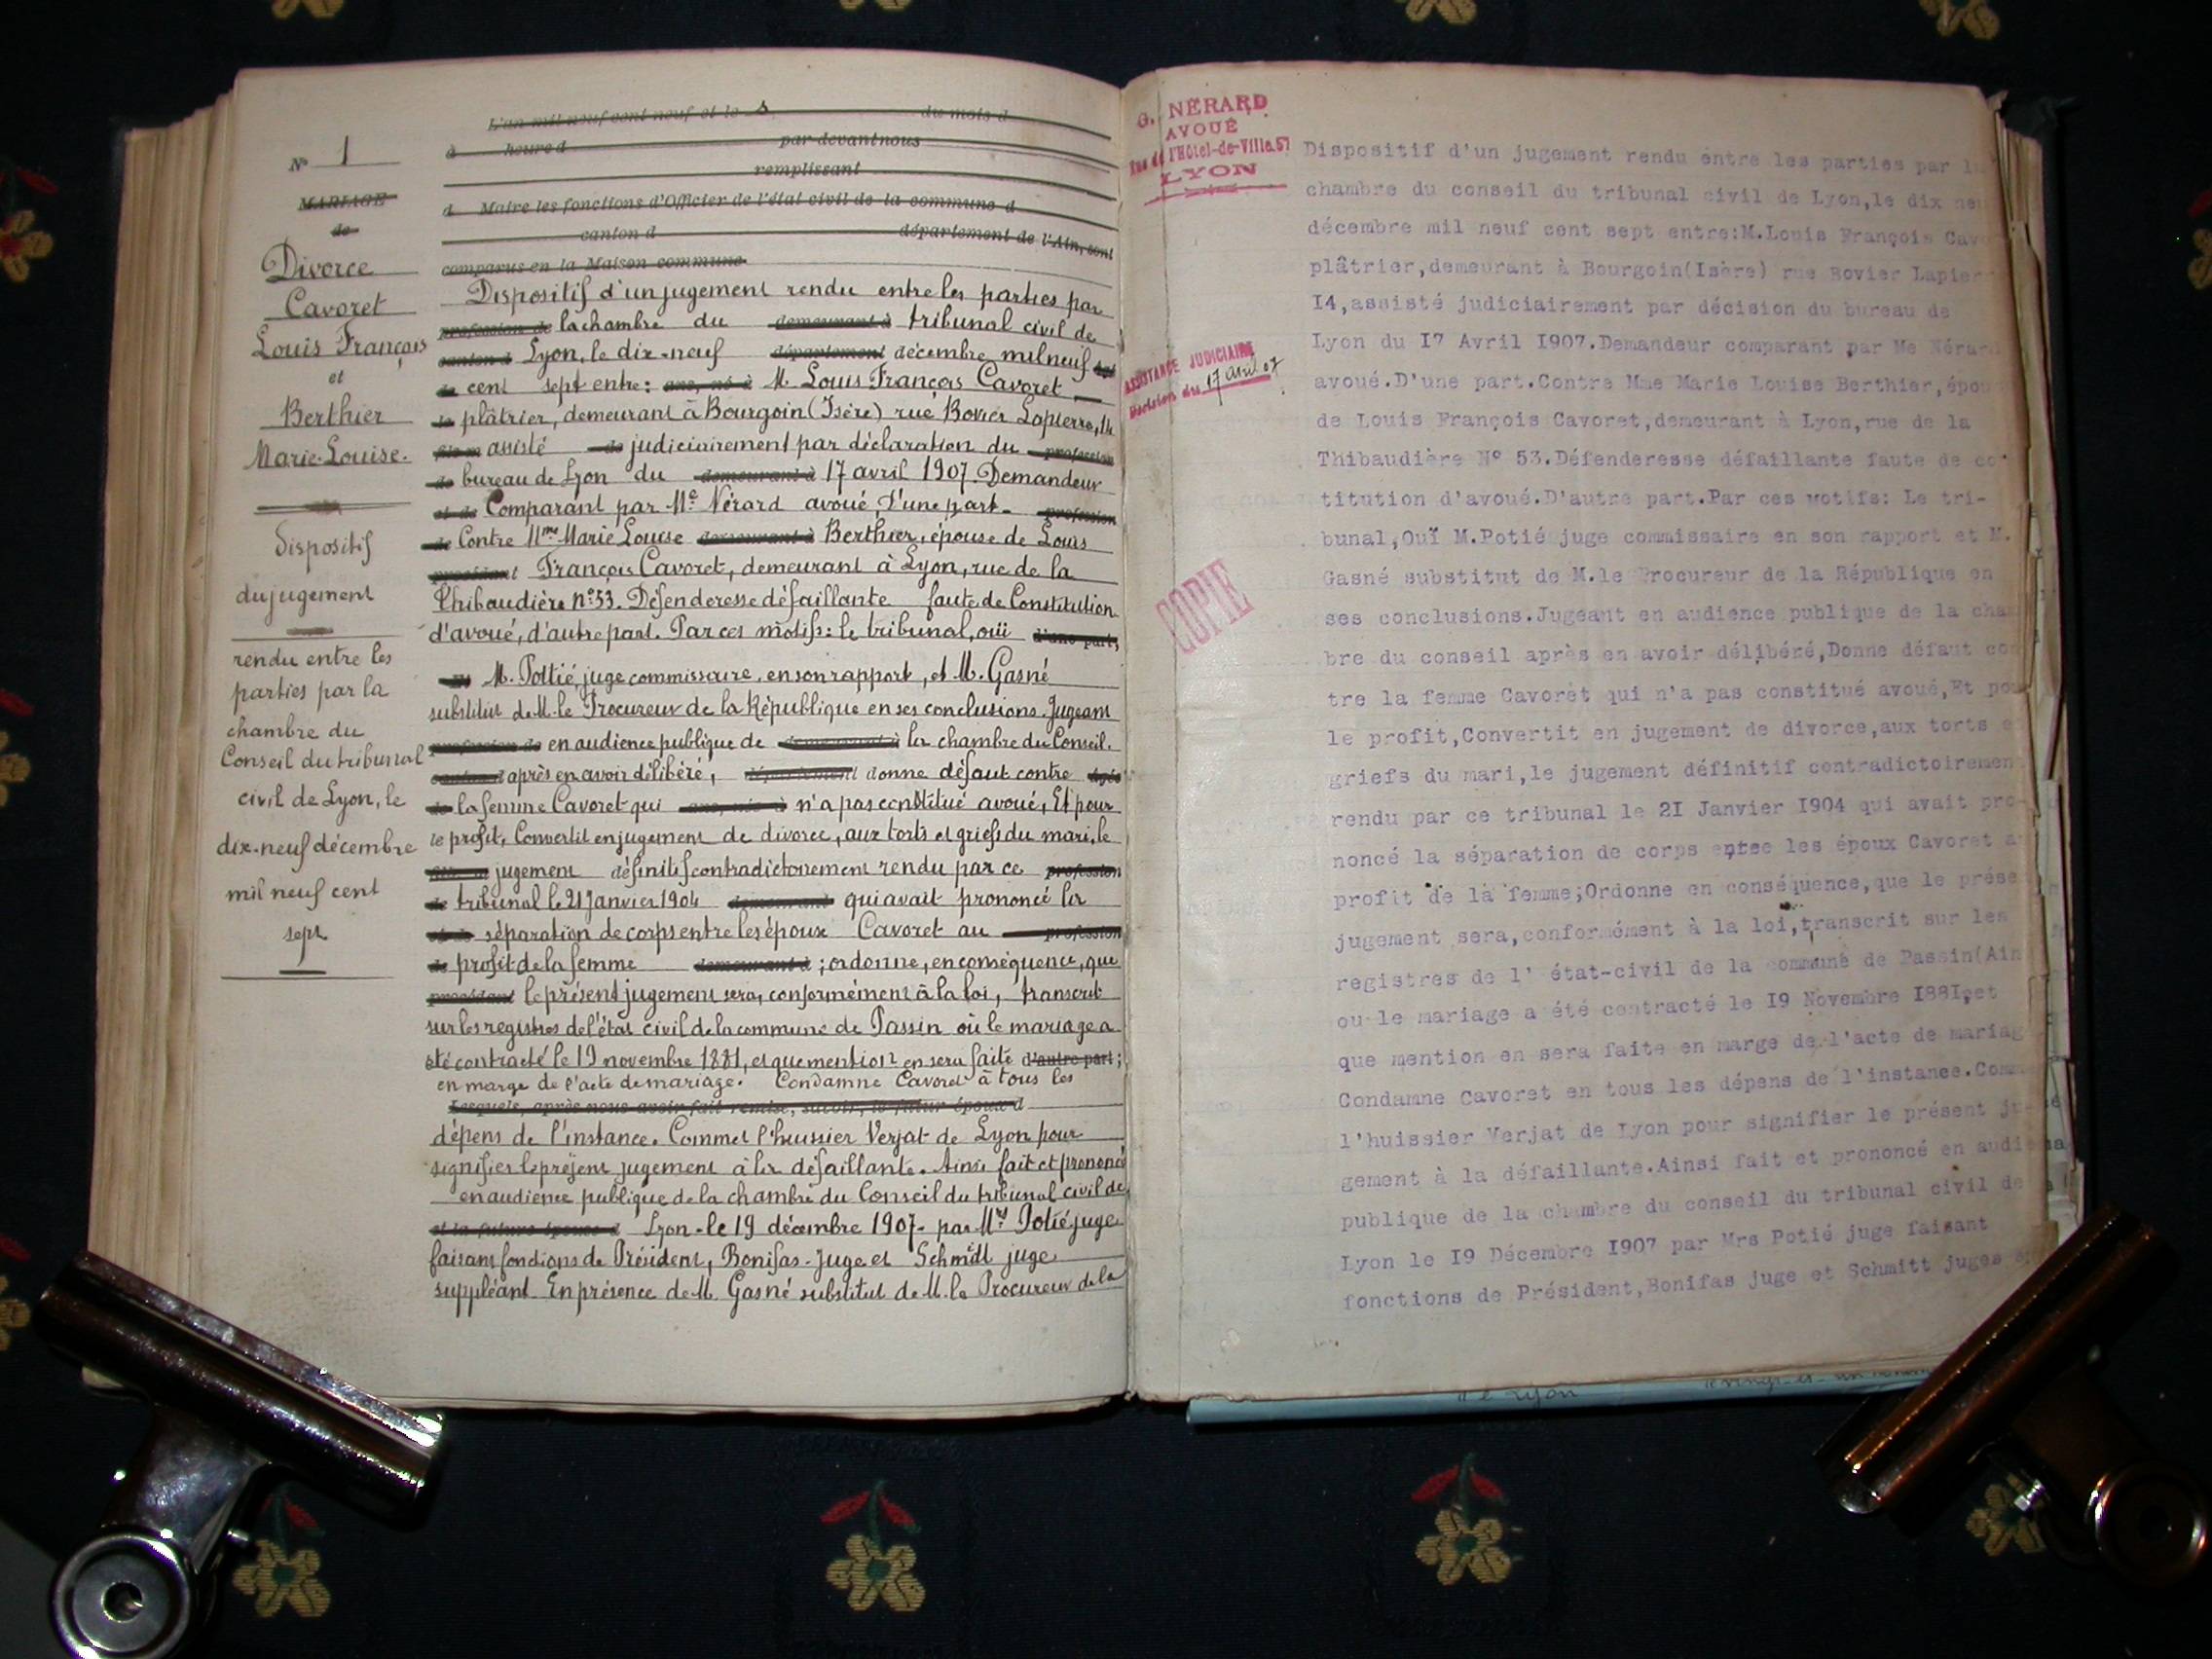 L'an mil neuf cent neuf et le s du mois d
à heure d par devant nous
remplissant
d Maire les fonctions d'Officier de l'état civil de la commune d
canton d département de l'Ain, sont
comparus en la Maison commune
N° 1
MARIAGE
de
Divorce
Cavoret
Louis François
et
Berthier
Marie-Louise.
Dispositif
du jugement
rendu entre les
parties par la
chambre du
Conseil du tribunal
civil de Lyon, le
dix-neuf décembre
mil neuf cent
sept
Dispositif d'un jugement rendu entre les parties par
profession de la chambre du demeurant à tribunal civil de
canton d Lyon, le dix-neuf département décembre mil neuf
de cent sept entre: ans, né à M. Louis François Cavoret
de plâtrier, demeurant à Bourgoin (Isère) rue Bovier Lapierre, 14
assisté de judiciairement par déclaration du profession
de bureau de Lyon du demeurant à 17 avril 1907. Demandeur
et de Comparant par Me Nérard avoué, D'une part. profession
de Contre Mme Marie Louise demeurant à Berthier, épouse de Louis
François Cavoret, demeurant à Lyon, rue de la
Thibaudière n° 53. Défenderesse défaillante faute de Constitution
d'avoué, d'autre part. Par ces motifs: le tribunal, ouï d'une part;
M. Pottié, juge commissaire, en son rapport, et M. Gasné
substitut de M. le Procureur de la République en ses conclusions. Jugeant
profession de en audience publique de demeurant à la chambre du Conseil.
après en avoir délibéré, département donne défaut contre
de la femme Cavoret qui ans, née à n'a pas constitué avoué, Et pour
le profit, Convertit en jugement de divorce, aux torts et griefs du mari, le
jugement définitif contradictoirement rendu par ce profession
de tribunal le 21 Janvier 1904 demeurant qui avait prononcé la
et de séparation de corps entre les époux Cavoret au profession
de profit de la femme demeurant à ; ordonne, en conséquence, que
le présent jugement sera, conformément à la loi, transcrit
sur les registres de l'état civil de la commune de Passin où le mariage a
été contracté le 19 novembre 1881, et que mention en sera faite d'autre part;
en marge de l'acte de mariage. Condamne Cavoret à tous les
Lesquels, après nous avoir fait remise, savoir, le futur époux d
dépens de l'instance. Commet l'huissier Verjat de Lyon pour
signifier le présent jugement à la défaillante. Ainsi fait et prononcé
en audience publique de la chambre du Conseil du tribunal civil de
et la future épouse d Lyon - le 19 décembre 1907 - par Mrs Potié juge
faisant fonctions de Président, Bonifas - Juge et Schmitt juge
suppléant. En présence de M. Gasné substitut de M. le Procureur de la
G. NÉRARD
AVOUÉ
Rue de l'Hôtel-de-Ville, 57
LYON
ASSISTANCE JUDICIAIRE
Décision du 17 Avril 07
COPIE
Dispositif d'un jugement rendu entre les parties par
chambre du conseil du tribunal civil de Lyon,le dix
décembre mil neuf cent sept entre:M.Louis François
plâtrier,demeurant à Bourgoin(Isère) rue Bovier
I4,assisté judiciairement par décision du bureau de
Lyon du I7 Avril I907.Demandeur comparant par Me Nérard
avoué.D'une part.Contre Mme Marie Louise Berthier,
de Louis François Cavoret,demeurant à Lyon,rue de la
Thibaudière N° 53.Défenderesse défaillante faute de
titution d'avoué.D'autre part.Par ces motifs: Le tri-
bunal,Ouï M.Potié juge commissaire en son rapport et M.
Gasné substitut de M.le Procureur de la République en
ses conclusions.Jugeant en audience publique de la cham
bre du conseil après en avoir délibéré,Donne défaut con
tre la femme Cavoret qui n'a pas constitué avoué,Et pour
le profit,Convertit en jugement de divorce,aux torts
griefs du mari,le jugement définitif contradictoiremen
rendu par ce tribunal le 2I Janvier I904 qui avait pro-
noncé la séparation de corps entee les époux Cavoret
profit de la femme;Ordonne en conséquence,que le
jugement sera,conformément à la loi,transcrit sur les
registres de l' état-civil de la commune de Passin(Ain
ou le mariage a été contracté le I9 Novembre I88I,et
que mention en sera faite en marge de l'acte de mariag
Condamne Cavoret en tous les dépens de l'instance.
l'huissier Verjat de Lyon pour signifier le présent ju-
gement à la défaillante.Ainsi fait et prononcé en audi
publique de la chambre du conseil du tribunal civil de
Lyon le I9 Décembre I907 par Mrs Potié juge faisant
fonctions de Président,Bonifas juge et Schmitt juges
de Lyon